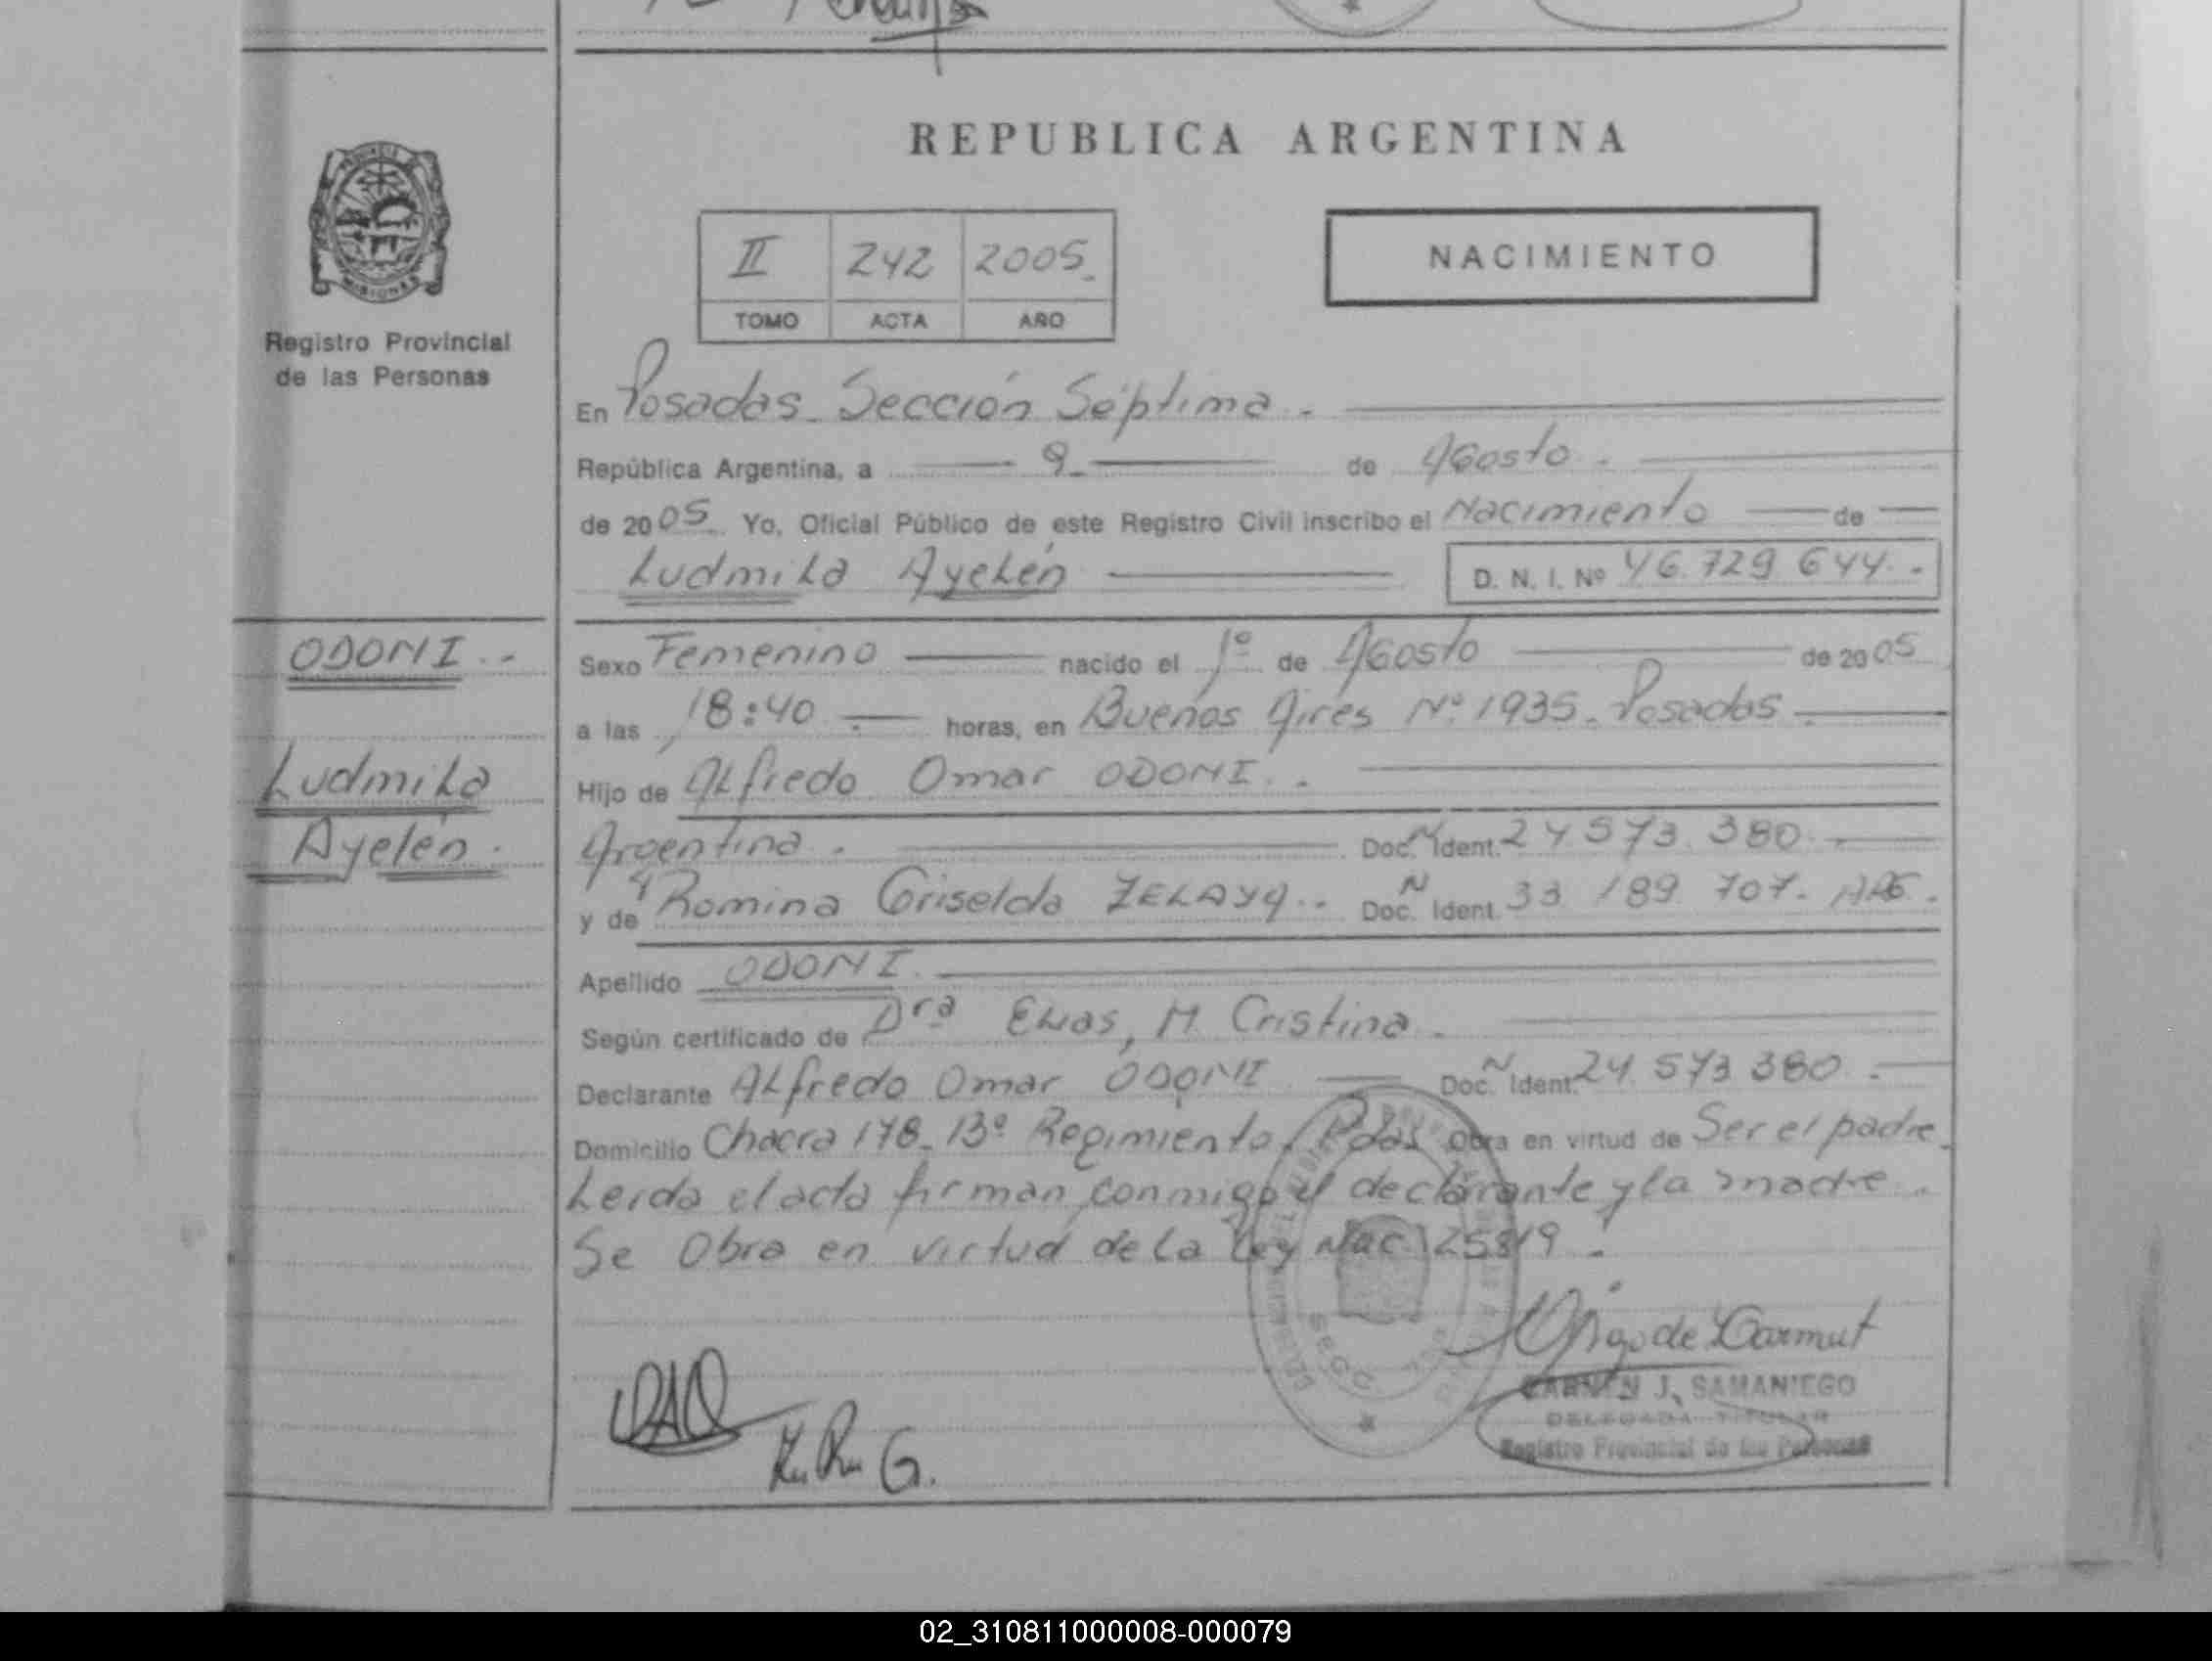 REPUBLICA ARGENTINA
PROVINCIA DE
MISIONES
Registro Provincial
de las Personas
II 242 2005
TOMO ACTA AÑO
NACIMIENTO
En Posadas Sección Séptima
República Argentina, a 9 de Agosto
de 2005 Yo, Oficial Público de este Registro Civil inscribo el Nacimiento de
Ludmila Ayelén D. N. I. Nº 46.729 644
ODONI
Sexo Femenino nacido el 1º de Agosto de 2005
a las 18:40 horas, en Buenos Aires Nº 1935. Posadas
Ludmila
Hijo de Alfredo Omar ODONI
Ayelén
Argentina Doc. N Ident. 24 573 380
y de Romina Griselda ZELAYA Doc. N Ident. 33 189 707. ARG.
Apellido ODONI
Según certificado de Dra Elias, M. Cristina
Declarante Alfredo Omar ODONI Doc. N Ident. 24 573 380
Domicilio Chacra 178. 13º Regimiento Pdas Obra en virtud de Ser el padre
Leida el acta firman conmigo el declarante y la madre
Se Obra en virtud de la Ley Nac 25819
CARMEN J. SAMANIEGO
DELEGADA TITULAR
Registro Provincial de las Personas
02_310811000008-000079